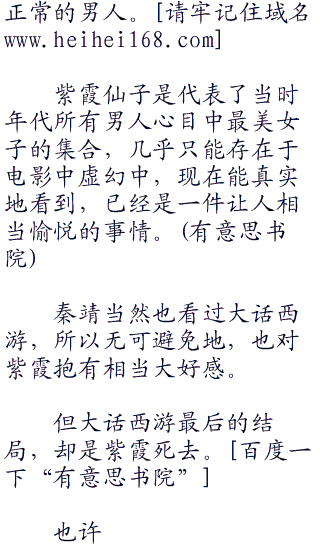 正常的男人。[请牢记住域名
www.heihei168.com]
紫霞仙子是代表了当时
年代所有男人心目中最美女
子的集合，几乎只能存在于
电影中虚幻中，现在能真实
地看到，已经是一件让人相
当愉悦的事情。(有意思书
院)
秦靖当然也看过大话西
游，所以无可避免地，也对
紫霞抱有相当大好感。
但大话西游最后的结
局，却是紫霞死去。[百度一
下“有意思书院”]
也许